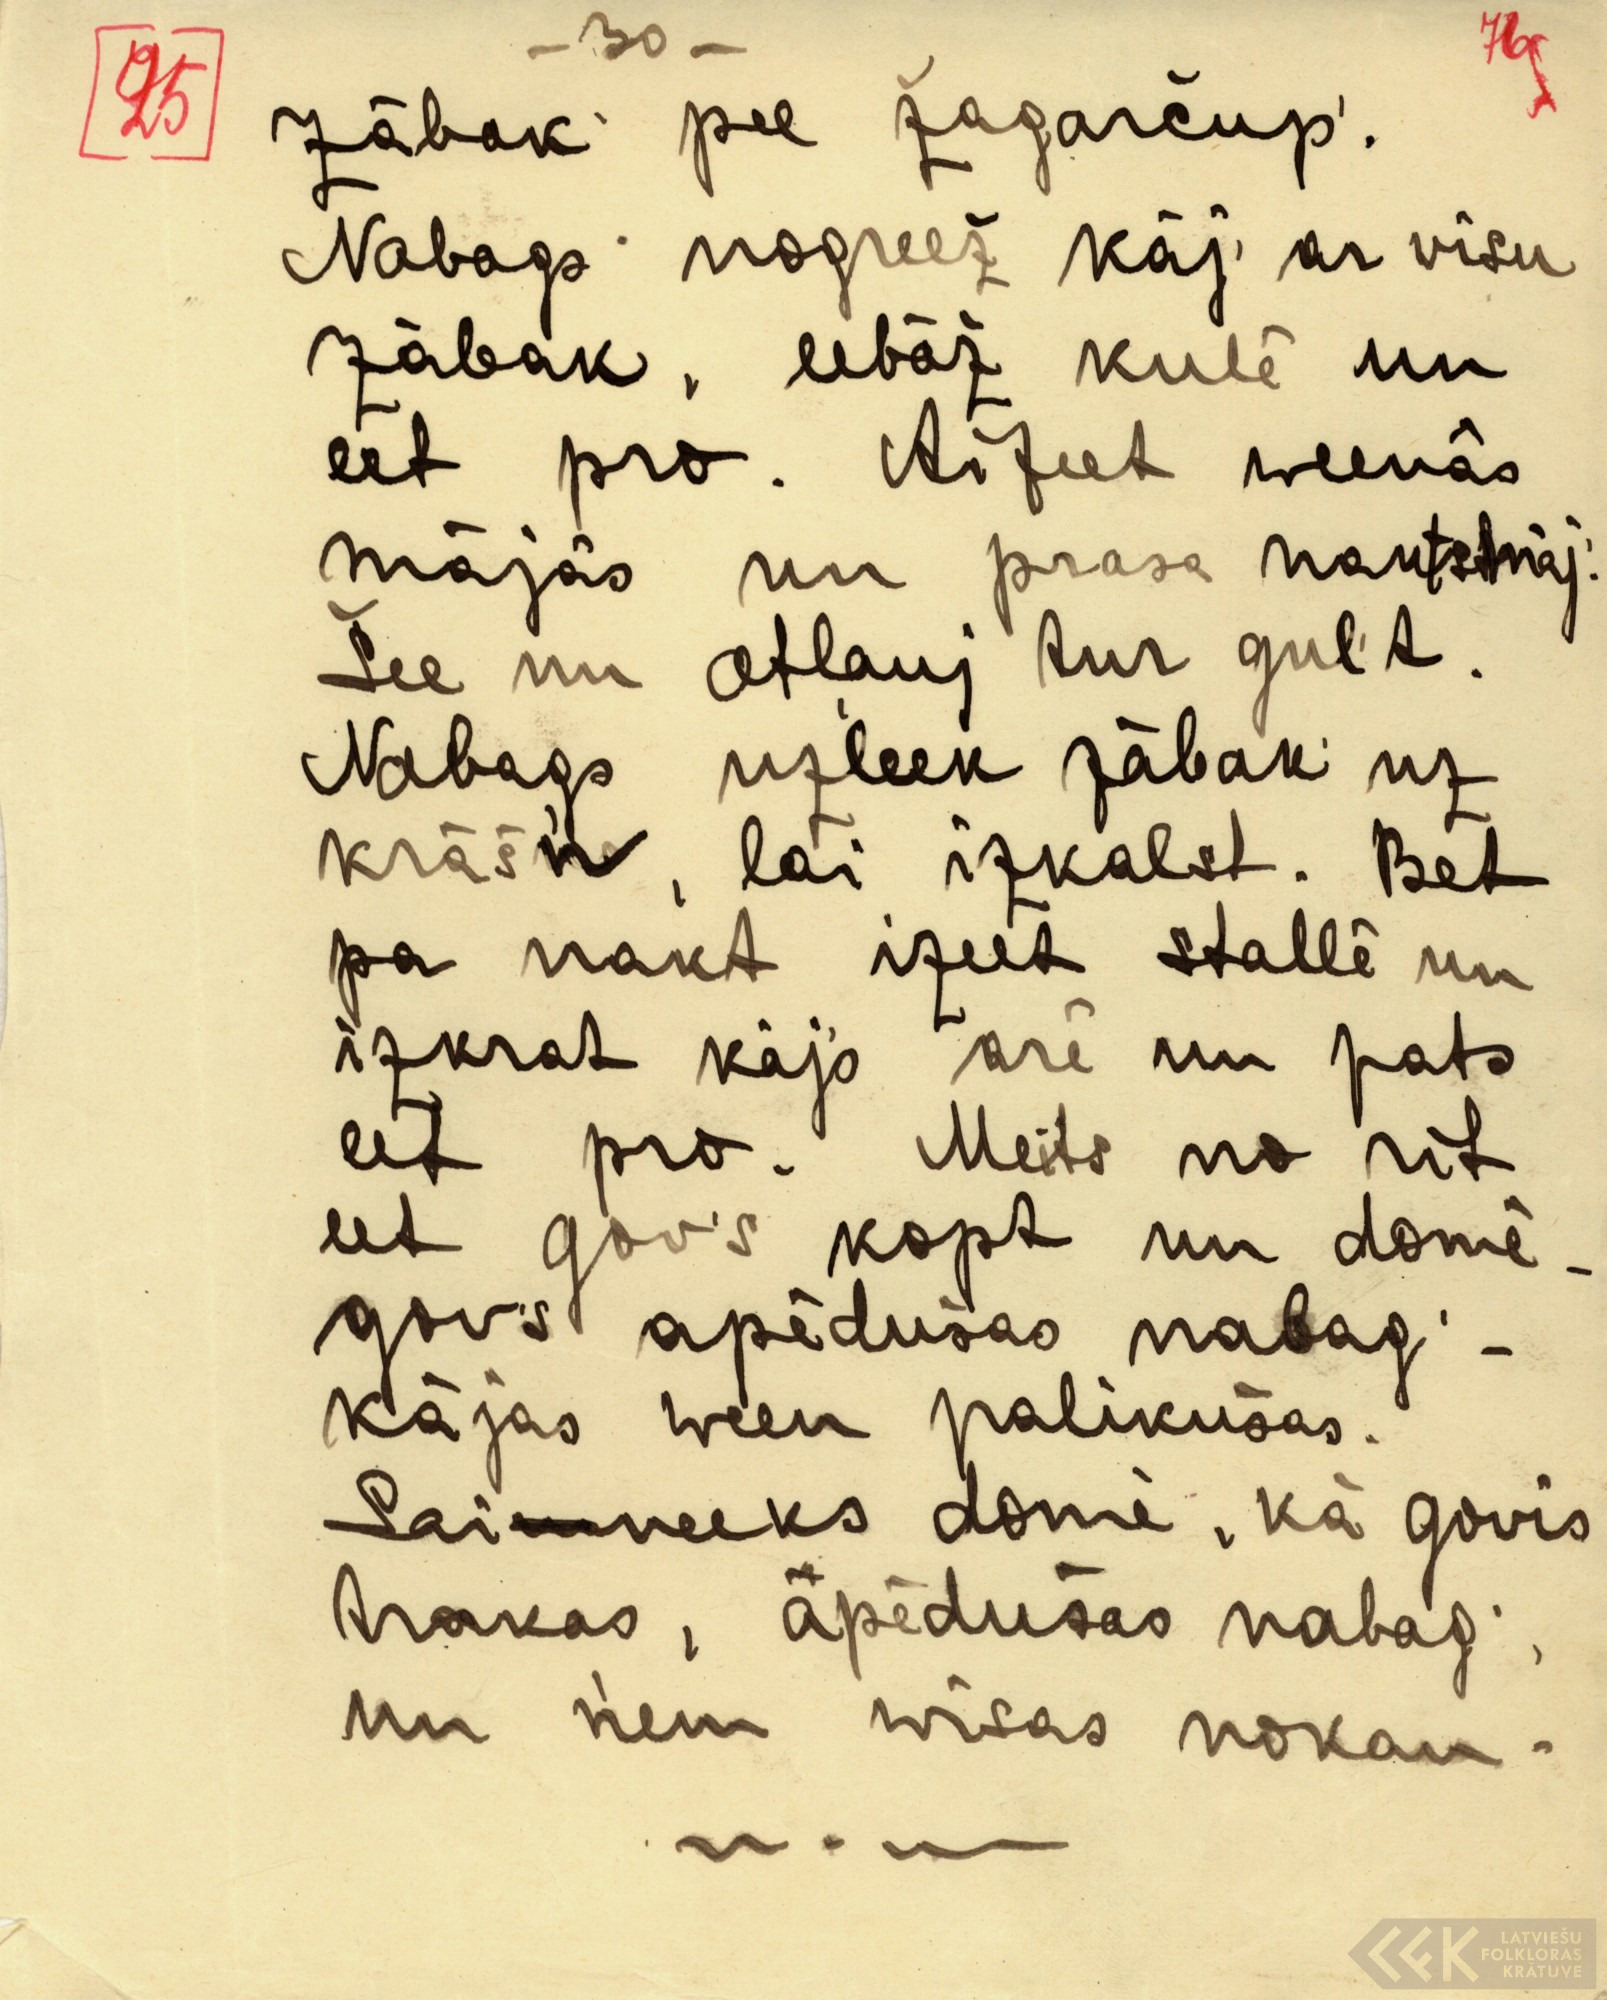 - 30 -
25
zābak' pee žagarčup'.
Nabags' nogreež kāj' ar visu
zābak, eebāž kulē un
eet pro. Aizeet weenās
mājās un prasa nautsmāj'.
Šee nu atļauj tur gul't.
Nabags uzleek zābak' uz
krāšń, lai izkalst. Bet
pa nakt izeet stallē un
izkrat kāj's ārē un pats
eet pro. Meits no rīt
eet gov's kopt un domē -
gov's apēdušas nabag' -
kājas ween palikušas.
Saineeks domē, kā govis
trakas, āpēdušas nabag',
un ńem wisas nokau -
LATVIEŠU
FOLKLORAS
KRĀTUVE